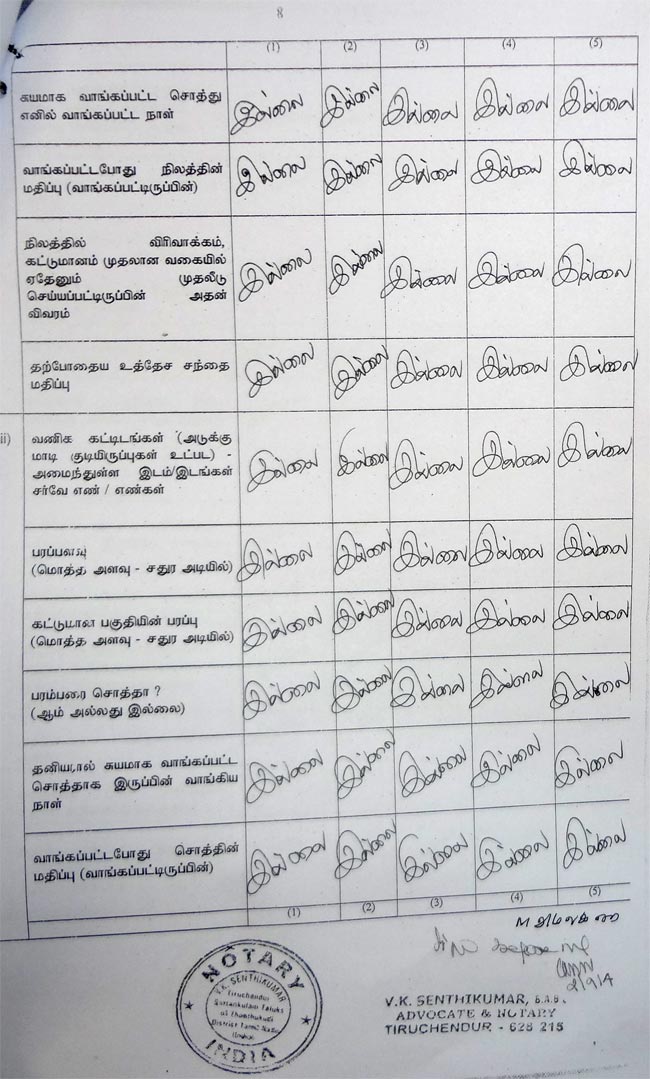 8
(1) (2) (3) (4) (5)
சுயமாக வாங்கப்பட்ட சொத்து
எனில் வாங்கப்பட்ட நாள்
இல்லை இல்லை இல்லை இல்லை இல்லை
வாங்கப்பட்டபோது நிலத்தின்
மதிப்பு (வாங்கப்பட்டிருப்பின்)
இல்லை இல்லை இல்லை இல்லை இல்லை
நிலத்தில் விரிவாக்கம்,
கட்டுமானம் முதலான வகையில்
ஏதேனும் முதலீடு
செய்யப்பட்டிருப்பின் அதன்
விவரம்
இல்லை இல்லை இல்லை இல்லை இல்லை
தற்போதைய உத்தேச சந்தை
மதிப்பு
இல்லை இல்லை இல்லை இல்லை இல்லை
ii) வணிக கட்டிடங்கள் (அடுக்கு
மாடி குடியிருப்புகள் உட்பட) -
அமைந்துள்ள இடம்/இடங்கள்
சர்வே எண் / எண்கள்
இல்லை இல்லை இல்லை இல்லை இல்லை
பரப்பளவு
(மொத்த அளவு - சதுர அடியில்)
இல்லை இல்லை இல்லை இல்லை இல்லை
கட்டுமான பகுதியின் பரப்பு
(மொத்த அளவு - சதுர அடியில்)
இல்லை இல்லை இல்லை இல்லை இல்லை
பரம்பரை சொத்தா ?
(ஆம் அல்லது இல்லை)
இல்லை இல்லை இல்லை இல்லை இல்லை
தனியரால் சுயமாக வாங்கப்பட்ட
சொத்தாக இருப்பின் வாங்கிய
நாள்
இல்லை இல்லை இல்லை இல்லை இல்லை
வாங்கப்பட்டபோது சொத்தின்
மதிப்பு (வாங்கப்பட்டிருப்பின்)
இல்லை இல்லை இல்லை இல்லை இல்லை
(1) (2) (3) (4) (5)
NOTARY
V.K. SENTHIKUMAR
Tiruchendur
Taluks
of Thoothukudi
District Tamil Nadu
(India)
INDIA
2/9/14
V.K. SENTHIKUMAR, B.A.B.L.
ADVOCATE & NOTARY
TIRUCHENDUR - 628 215